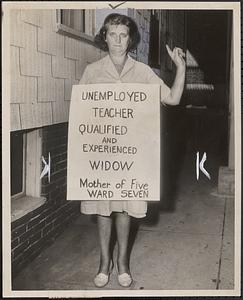 UNEMPLOYED
TEACHER
QUALIFIED
AND
EXPERIENCED
WIDOW
Mother of Five
WARD SEVEN